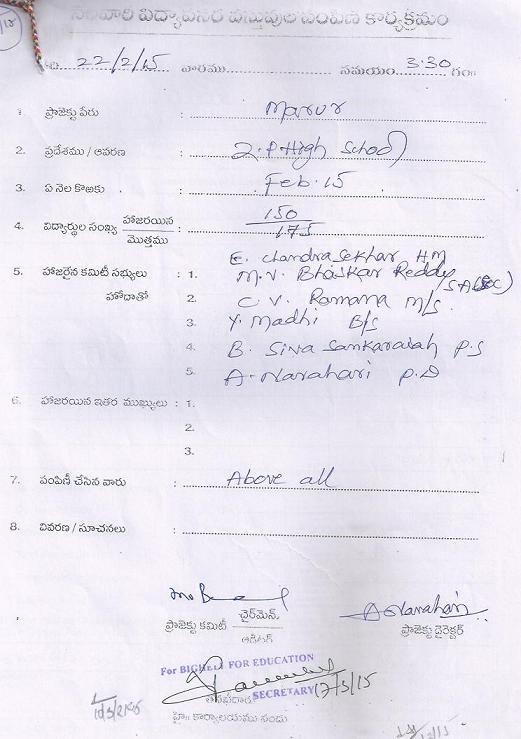 నెలవారి విద్యావసర వస్తువుల పంపిణి కార్యక్రమం
తేది. 22/2/15 వారము.................... సమయం. 3.30 గం॥
1. ప్రాజెక్టు పేరు : Marur
2. ప్రదేశము / ఆవరణ : Z.P High School
3. ఏ నెల కొఱకు : Feb.15
4. విద్యార్థుల సంఖ్య హాజరయిన : 150
మొత్తము 175
E. Chandra Sekhar HM
5. హాజరైన కమిటీ సభ్యులు : 1. M.V. Bhaskar Reddy SA
హోదాతో 2. C V. Ramana M/S.
3. Y. Madhi B/S
4. B. Siva Sankaraiah P.S
5. A. Narahari P.D
6. హాజరయిన ఇతర ముఖ్యులు : 1.
2.
3.
7. పంపిణీ చేసిన వారు : Above all
8. వివరణ / సూచనలు :
చైర్‌మెన్,
ప్రాజెక్టు కమిటీ
ఆడిటర్
A Narahari
ప్రాజెక్టు డైరెక్టర్
For BIGHELP FOR EDUCATION
SECRETARY 17/3/15
హై॥ కార్యాలయము నందు